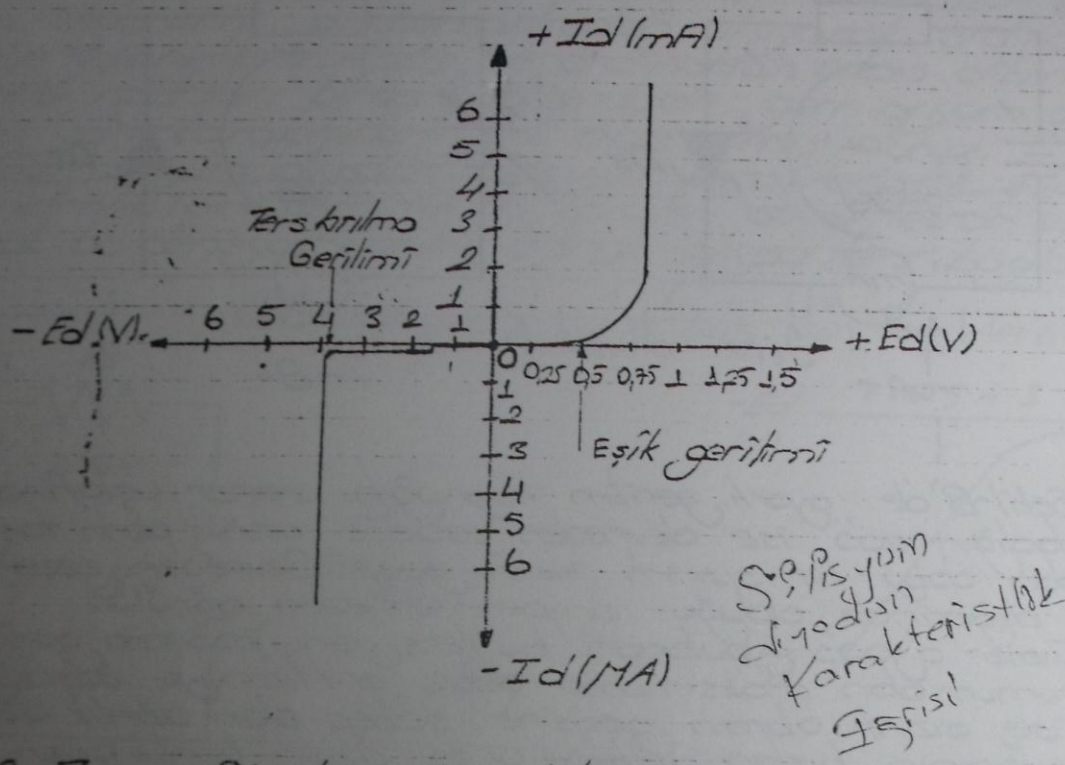 +Id(mA)
6
5
4
3
2
1
Ters kırılma
Gerilimi
-Ed(V)
6 5 4 3 2 1
0
0,25 0,5 0,75 1 1,25 1,5
+Ed(V)
1
2
3
4
5
6
Eşik gerilimi
-Id(MA)
diyodun
Karakteristlik